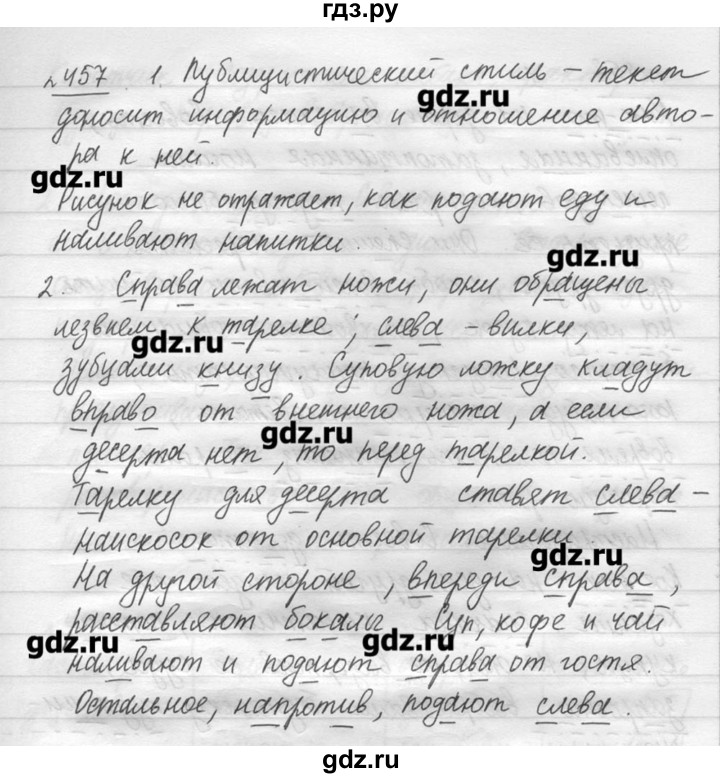 гдз.ру
№457. 1. Публицистический стиль – текст
gdz.ru
доносит информацию и отношение авто-
ра к ней.
gdz.ru
Рисунок не отражает, как подают еду и
наливают напитки.
gdz.ru
2. Справа лежат ножи, они обращены
лезвием к тарелке; слева – вилки,
gdz.ru
зубцами книзу. Суповую ложку кладут
вправо от внешнего ножа, а если
gdz.ru
десерта нет, то перед тарелкой.
Тарелку для десерта ставят слева –
наискосок от основной тарелки.
gdz.ru
На другой стороне, впереди справа,
расставляют бокалы. Суп, кофе и чай
gdz.ru gdz.ru
наливают и подают справа от гостя.
Остальное, напротив, подают слева.
gdz.ru